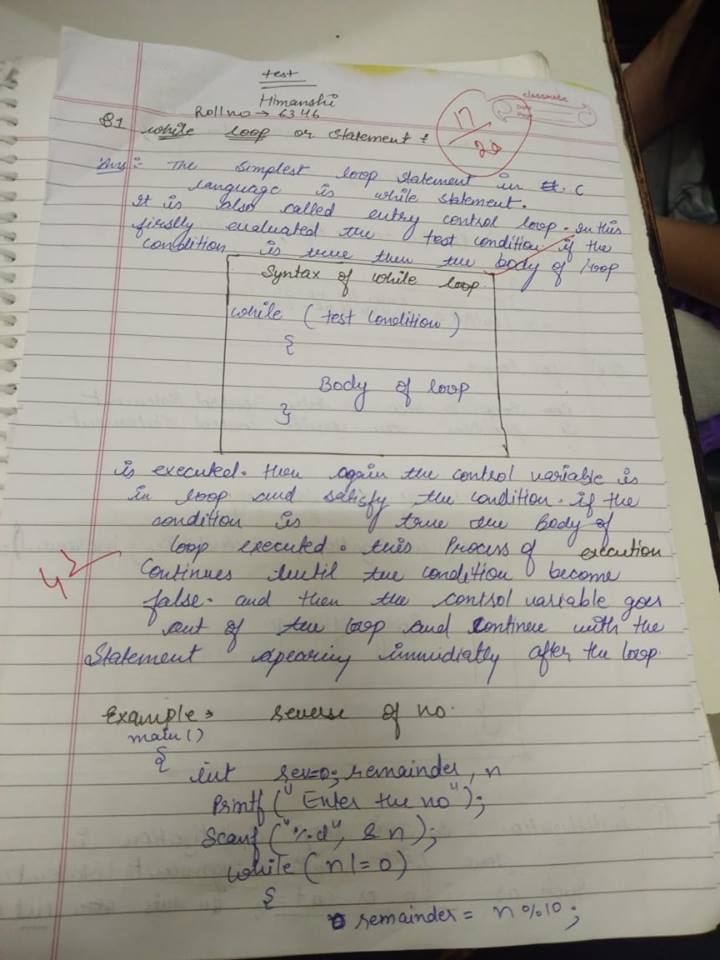 test
Himanshi
Rollno → 6346
classmate
Date
Page
17/20
Q1 while loop or statement :
Ans:- The simplest loop statement in C
language is while statement.
It is also called entry control loop. In this
firstly evaluated the test condition if the
condition is true then the body of loop
Syntax of while loop
while ( test condition )
{
Body of loop
}
is executed. then again the control variable is
in loop and satisfy the condition. if the
condition is true the Body of
loop executed. this Process of execution
Continues until the condition become
false. and then the control variable goes
out of the loop and continue with the
Statement apearing immidiatly after the loop.
4
Example → reverse of no.
main()
{
int rev=0; remainder, n
Printf (" Enter the no");
Scanf ("%d", & n);
while ( n != 0)
{
remainder = n%10;